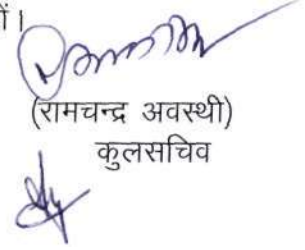 ों।
(रामचन्द्र अवस्थी)
कुलसचिव